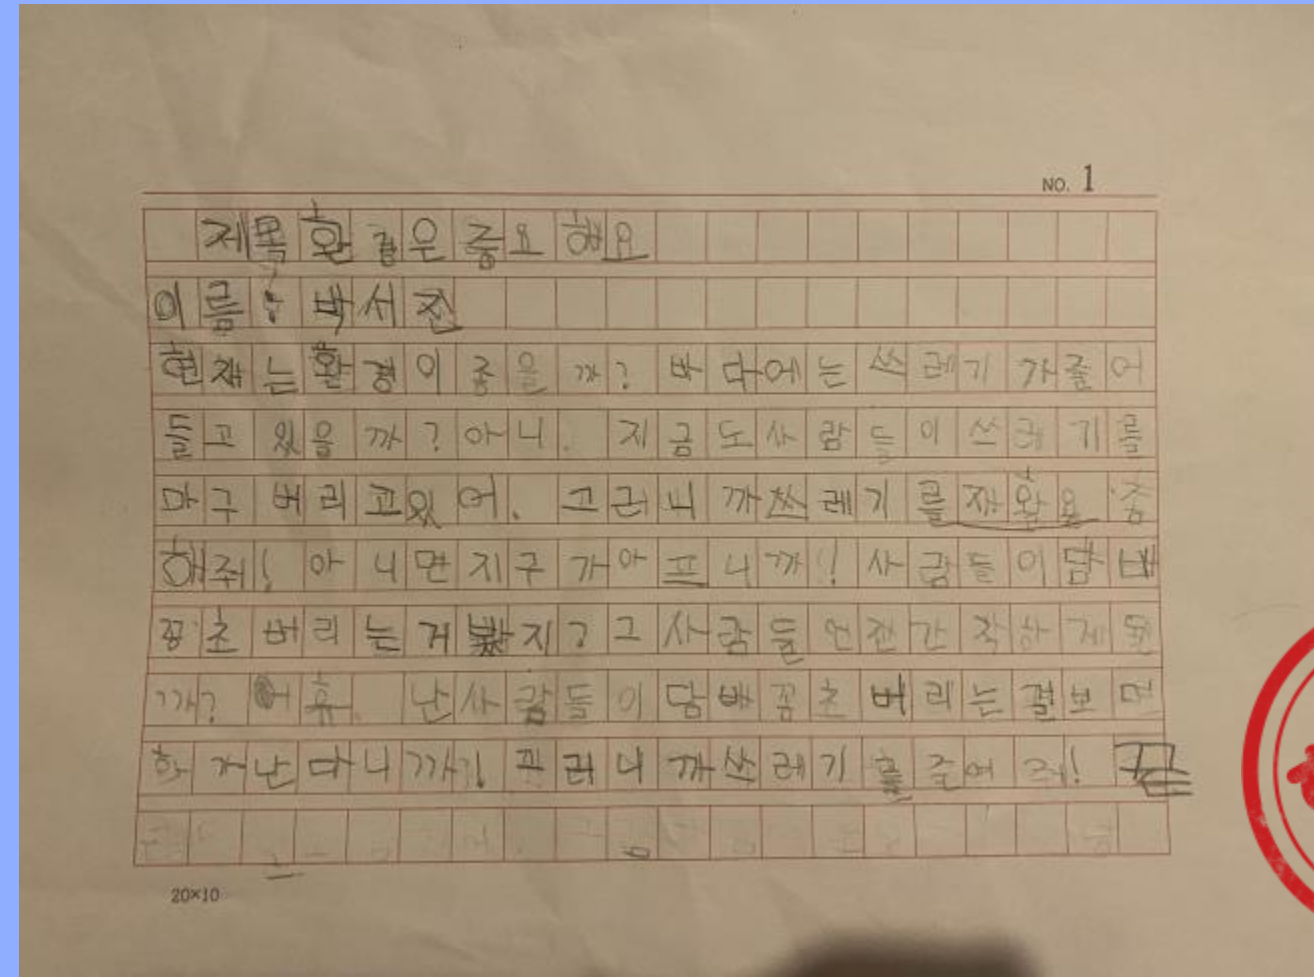 NO. 1
제목 환경은 중요해요
이름: 박서진
현재는 환경이 좋을까? 바다에는 쓰레기가 줄어
들고 있을까? 아니. 지금도 사람들이 쓰레기를
마구 버리고있어. 그러니까 쓰레기를
해줘! 아니면 지구가 아프니까! 사람들이 담배
꽁초 버리는거 봤지? 그 사람들 언젠간 착하게 될
까? 어휴. 난 사람들이 담배꽁초 버리는 걸보면
화가난다니까! 그러니까 쓰레기를 줄여줘! 끝
20×10